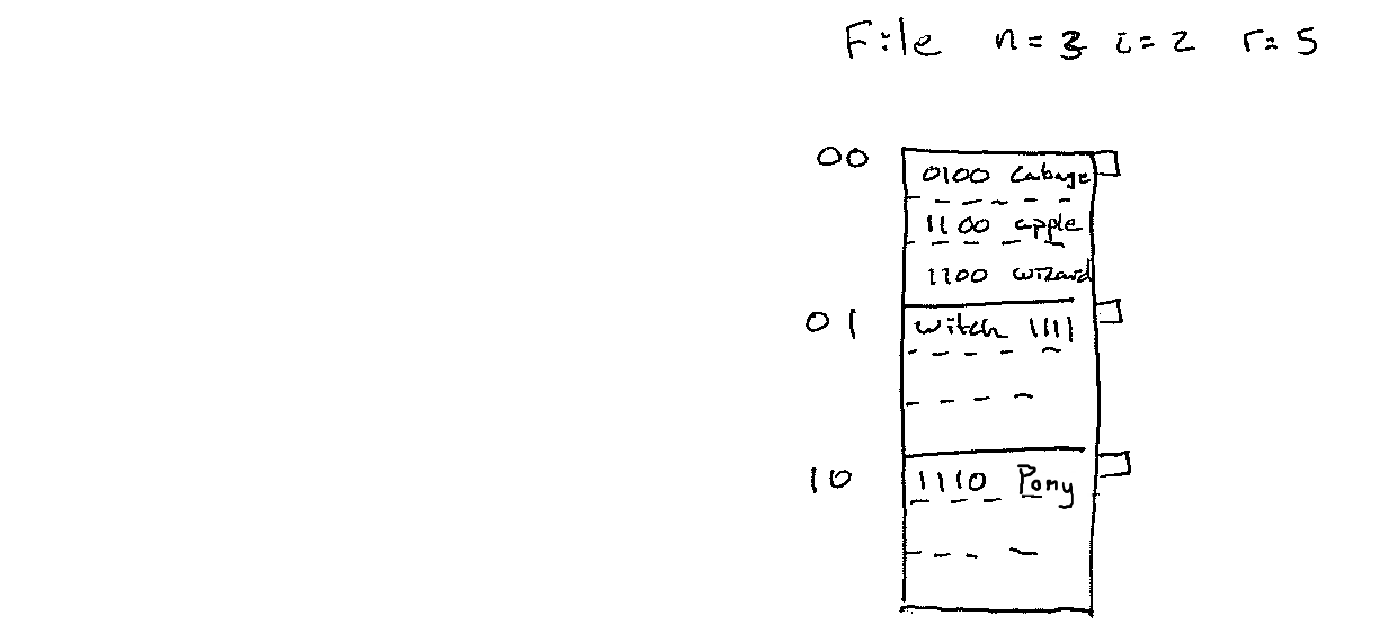 File n=3 i=2 r=5
00
0100 Cabage
1100 apple
1100 wizard
01
witch 1111
10
1110 Pony